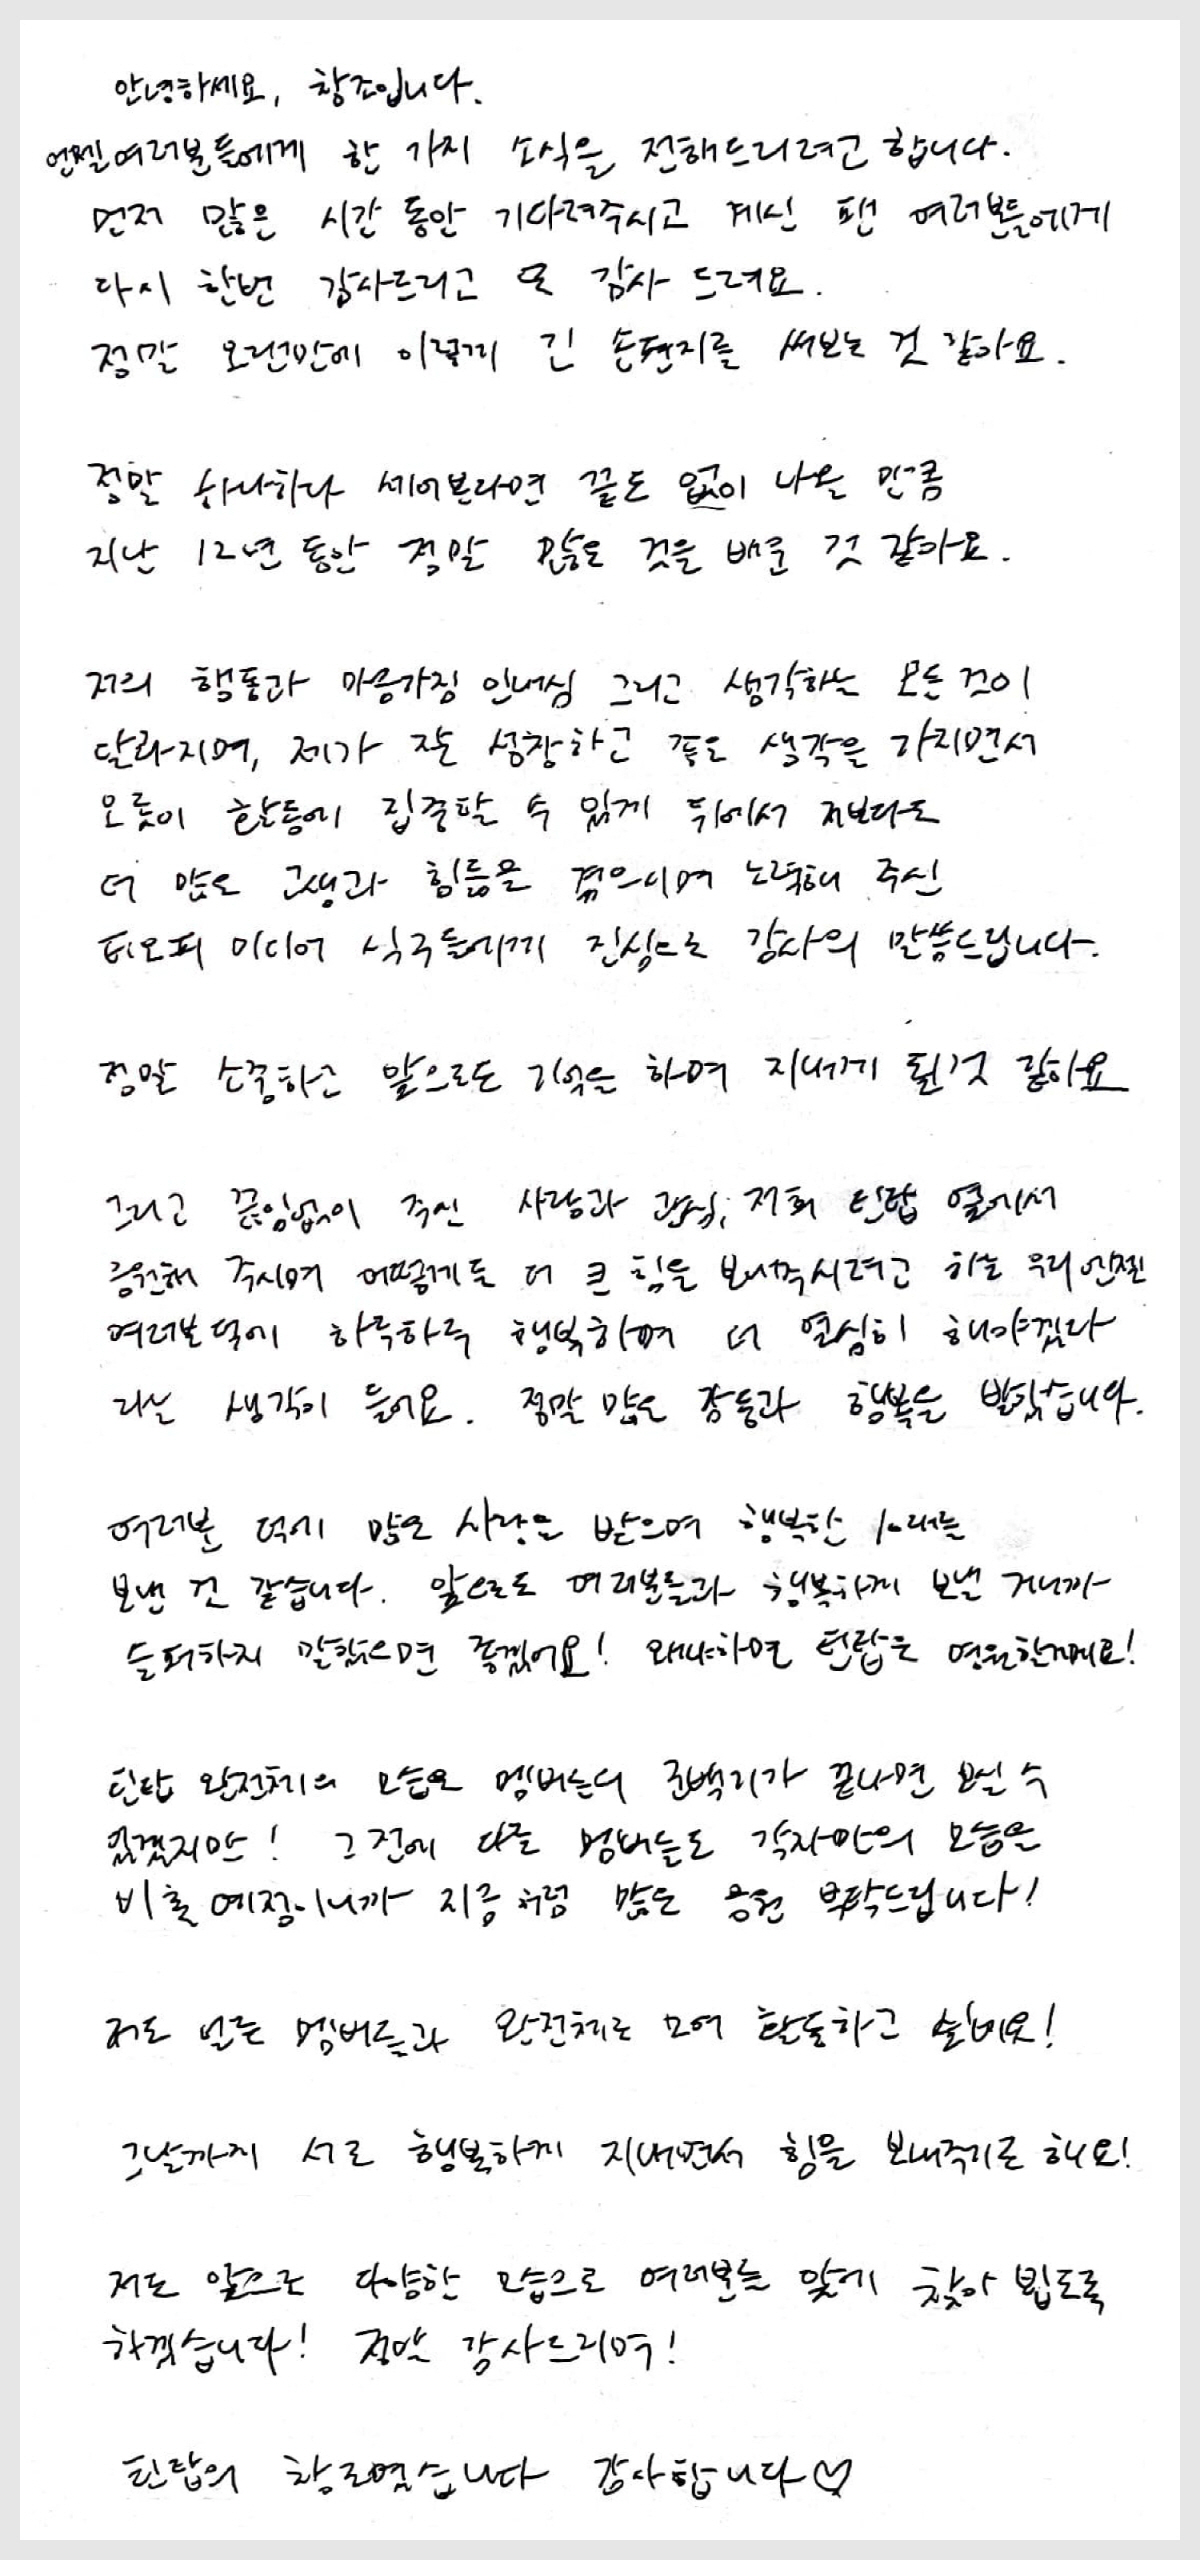 안녕하세요, 창조입니다.
엔젤여러분들에게 한 가지 소식을 전해드리려고 합니다.
먼저 많은 시간 동안 기다려주시고 계신 팬 여러분들에게
다시 한번 감사드리고 또 감사 드려요.
정말 오랜만에 이렇게 긴 손편지를 써보는 것 같아요.
정말 하나하나 세어본다면 끝도 없이 나올 만큼
지난 12년 동안 정말 많은 것을 배운 것 같아요.
저의 행동과 마음가짐 인내심 그리고 생각하는 모든 것이
달라지며, 제가 잘 성장하고 좋은 생각을 가지면서
오롯이 활동에 집중할 수 있게 뒤에서 저보다도
더 많은 고생과 힘듦을 겪으시며 노력해 주신
티오피 미디어 식구들에게 진심으로 감사의 말씀드립니다.
정말 소중하고 앞으로도 기억을 하며 지내게 될것 같아요
그리고 끊임없이 주신 사랑과 관심, 저희 틴탑 옆에서
응원해 주시며 어떻게든 더 큰 힘을 보내주시려고 하는 우리 엔젤
여러분 덕에 하루하루 행복하며 더 열심히 해야겠다
라는 생각이 들어요. 정말 많은 감동과 행복을 받았습니다.
여러분 덕에 많은 사랑을 받으며 행복한 10대를
보낸 건 같습니다. 앞으로도 여러분들과 행복하게 보낼 거니까
슬퍼하지 말았으면 좋겠어요! 왜냐하면 틴탑은 영원할게요!
틴탑 완전체의 모습은 멤버들의 군백기가 끝나면 보실 수
있겠지만! 그 전에 다른 멤버들도 각자만의 모습을
비출 예정이니까 지금처럼 많은 응원 부탁드립니다!
저도 얼른 멤버들과 완전체로 모여 활동하고 싶네요!
그날까지 서로 행복하게 지내면서 힘을 보내주기로 해요!
저도 앞으로 다양한 모습으로 여러분들 앞에 찾아 뵙도록
하겠습니다! 정말 감사드리며!
틴탑의 창조였습니다 감사합니다♡